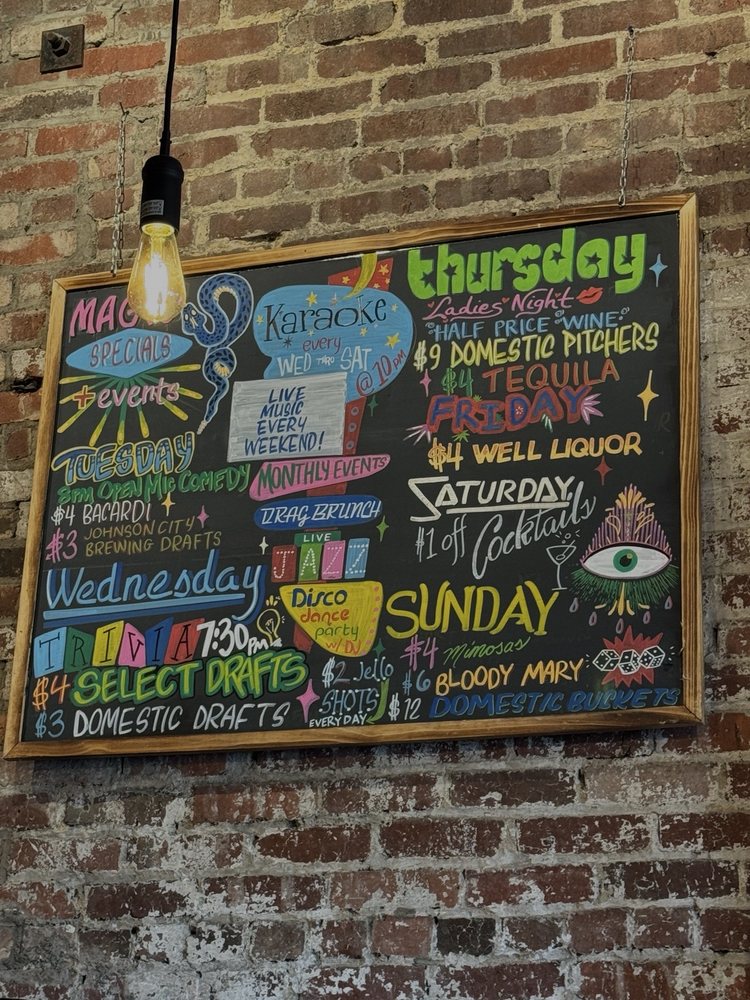 SPECIALS
+ events
TUESDAY
8pm OPEN MIC COMEDY
$4 BACARDI
$3 JOHNSON CITY
BREWING DRAFTS
Wednesday
TRIVIA 7:30pm
$4 SELECT DRAFTS
$3 DOMESTIC DRAFTS
Karaoke
every
WED THRU SAT
@ 10pm
LIVE
MUSIC
EVERY
WEEKEND!
MONTHLY EVENTS
DRAG BRUNCH
LIVE
JAZZ
Disco
dance
party
w/ DJ
$2 Jello
SHOTS
EVERY DAY
thursday
"Ladies" Night
"HALF PRICE "WINE"
$9 DOMESTIC PITCHERS
$4 TEQUILA
FRIDAY
$4 WELL LIQUOR
SATURDAY
$1 off Cocktails
SUNDAY
$4 Mimosas
$6 BLOODY MARY
$12 DOMESTIC BUCKETS